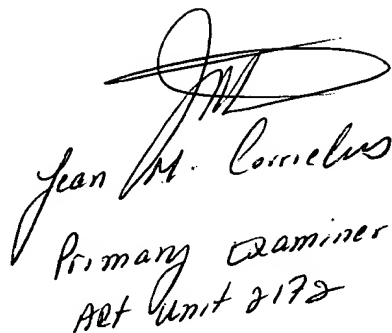 Jean M. Corrielus
Primary Examiner
Art Unit 2172